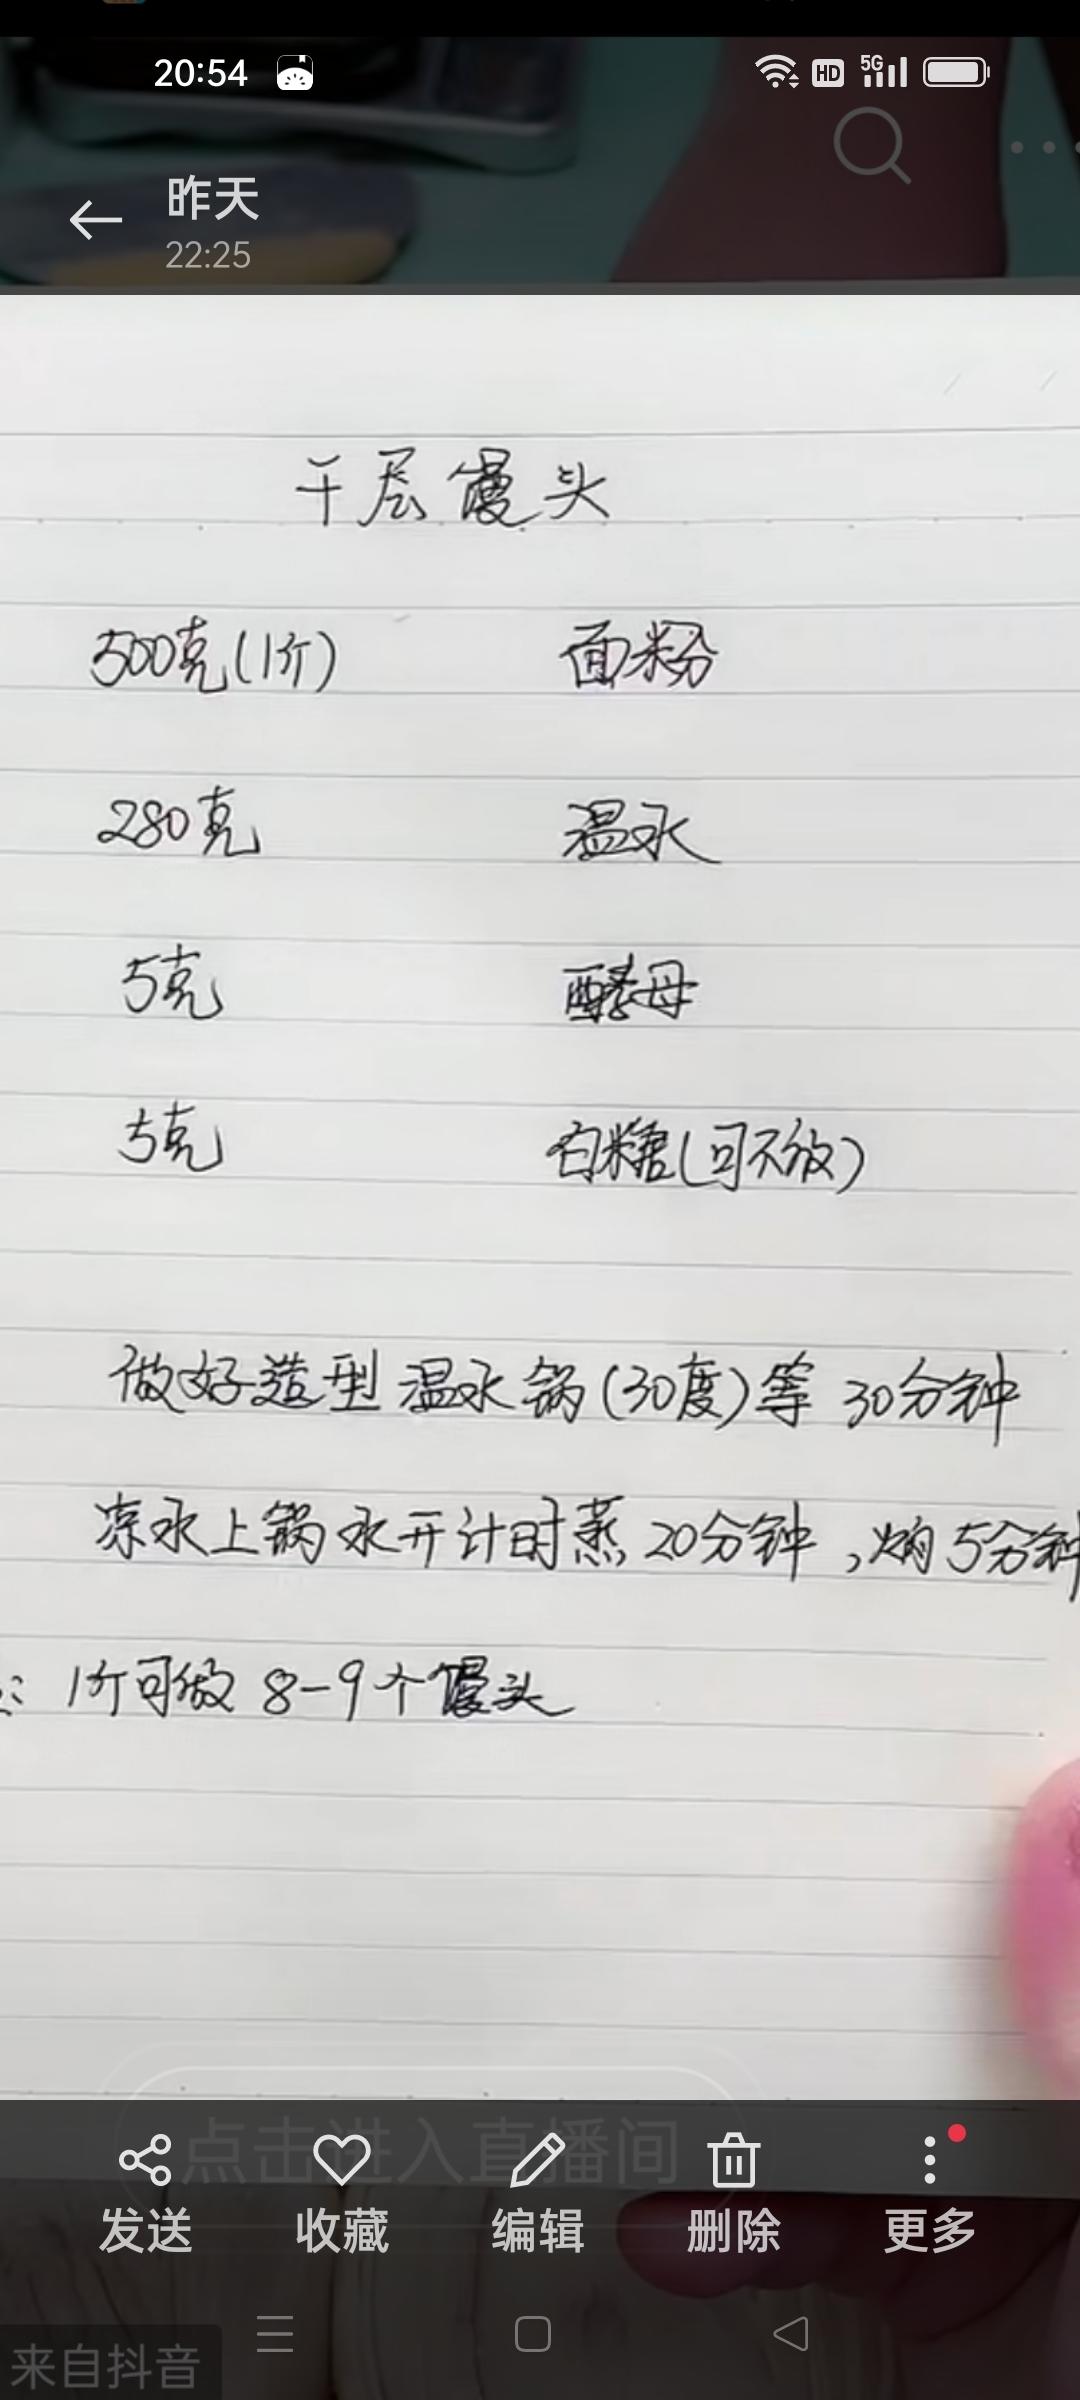 20:54 HD 5G
昨天
22:25
千层馒头
500克(1斤) 面粉
280克 温水
5克 酵母
5克 白糖(可不放)
做好造型 温水锅(30度)等 30分钟
凉水上锅 水开计时蒸 20分钟，焖5分钟
: 1斤可做 8-9个馒头
点击进入直播间
发送 收藏 编辑 删除 更多
来自抖音